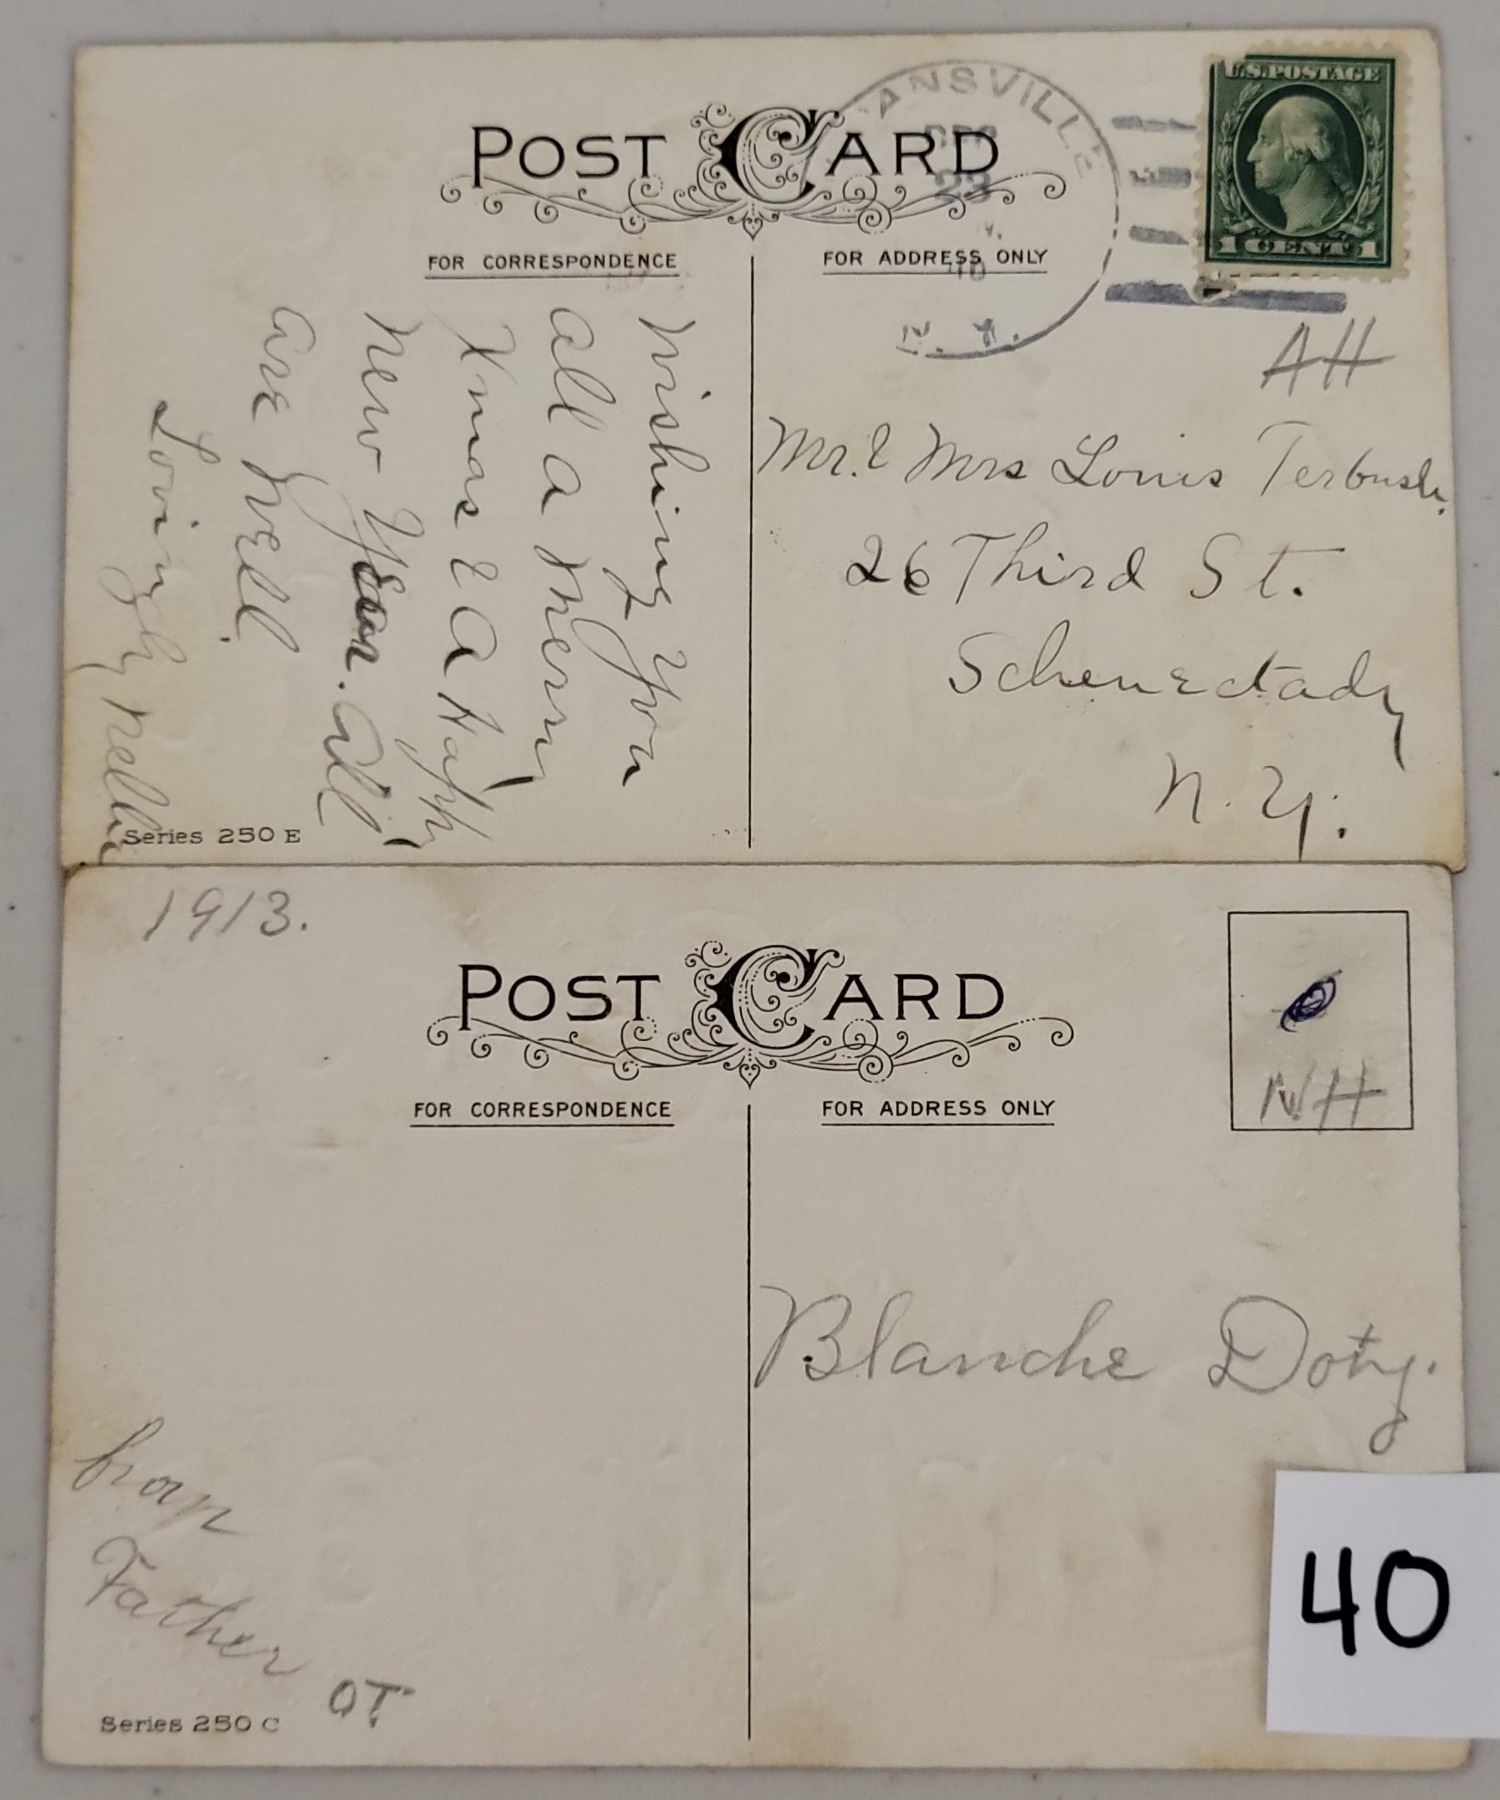 POST CARD
ANSVILLE
DEC
23
N. Y.
U.S. POSTAGE
1 CENT 1
FOR CORRESPONDENCE
FOR ADDRESS ONLY
AH
Wishing You
all a Merry
Xmas & A Happy
New Year. All
are well.
Lovingly Nellie
Mr. & Mrs Louis Terbush.
26 Third St.
Schenectady
N. Y.
Series 250 E
1913.
POST CARD
FOR CORRESPONDENCE
FOR ADDRESS ONLY
NH
Blanche Doty.
from
Father
OT.
Series 250 C
40